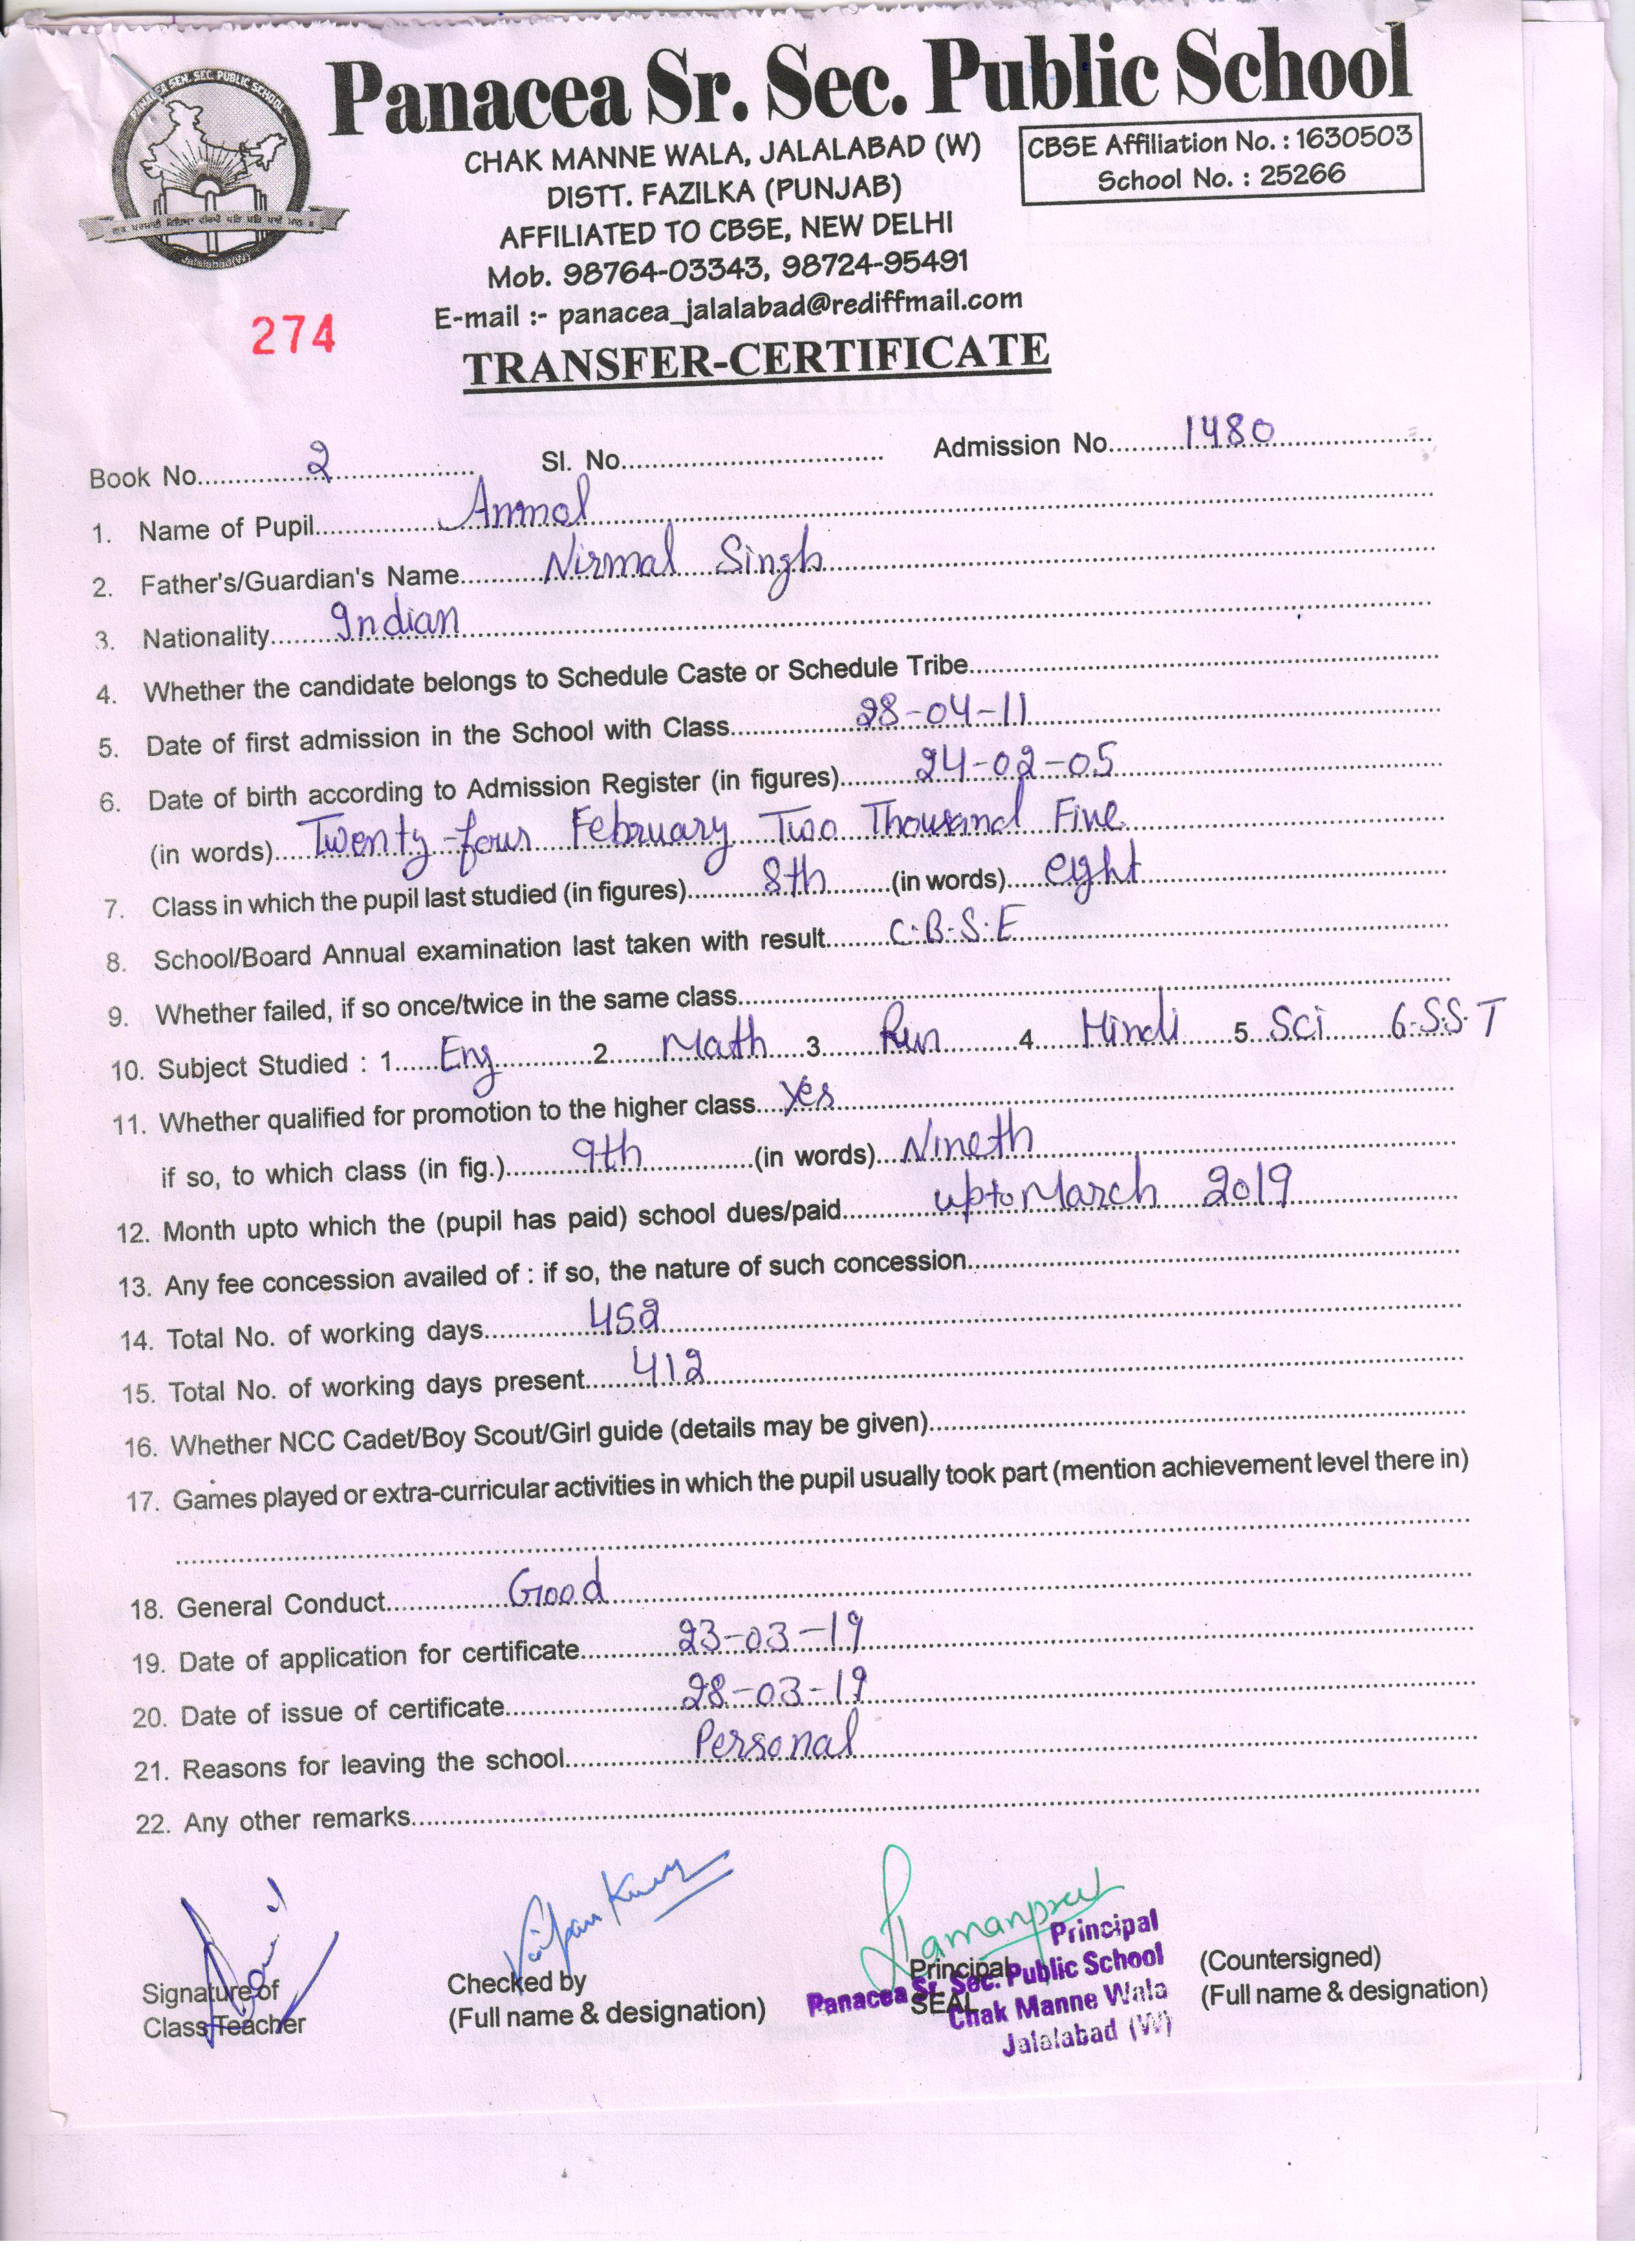 PANACEA SEN. SEC. PUBLIC SCHOOL
Jalalabad(W)
Panacea Sr. Sec. Public School
CHAK MANNE WALA, JALALABAD (W)
DISTT. FAZILKA (PUNJAB)
AFFILIATED TO CBSE, NEW DELHI
Mob. 98764-03343, 98724-95491
E-mail :- panacea_jalalabad@rediffmail.com
CBSE Affiliation No. : 1630503
School No. : 25266
274
TRANSFER-CERTIFICATE
Book No. 2 Sl. No. Admission No. 1480
1. Name of Pupil Anmol
2. Father's/Guardian's Name Nirmal Singh
3. Nationality Indian
4. Whether the candidate belongs to Schedule Caste or Schedule Tribe
5. Date of first admission in the School with Class 28-04-11
6. Date of birth according to Admission Register (in figures) 24-02-05
(in words) Twenty-four February Two Thousand Five
7. Class in which the pupil last studied (in figures) 8th (in words) eight
8. School/Board Annual examination last taken with result C.B.S.E
9. Whether failed, if so once/twice in the same class
10. Subject Studied : 1. Eng 2. Math 3. Pun 4. Hindi 5. Sci 6. S.S.T
11. Whether qualified for promotion to the higher class Yes
if so, to which class (in fig.) 9th (in words) Nineth
12. Month upto which the (pupil has paid) school dues/paid upto March 2019
13. Any fee concession availed of : if so, the nature of such concession
14. Total No. of working days 452
15. Total No. of working days present 412
16. Whether NCC Cadet/Boy Scout/Girl guide (details may be given)
17. Games played or extra-curricular activities in which the pupil usually took part (mention achievement level there in)
18. General Conduct Good
19. Date of application for certificate 23-03-19
20. Date of issue of certificate 28-03-19
21. Reasons for leaving the school Personal
22. Any other remarks
Signature of
Class Teacher
Checked by
(Full name & designation)
Principal
SEAL
Principal
Panacea Sr. Sec. Public School
Chak Manne Wala
Jalalabad (W)
(Countersigned)
(Full name & designation)